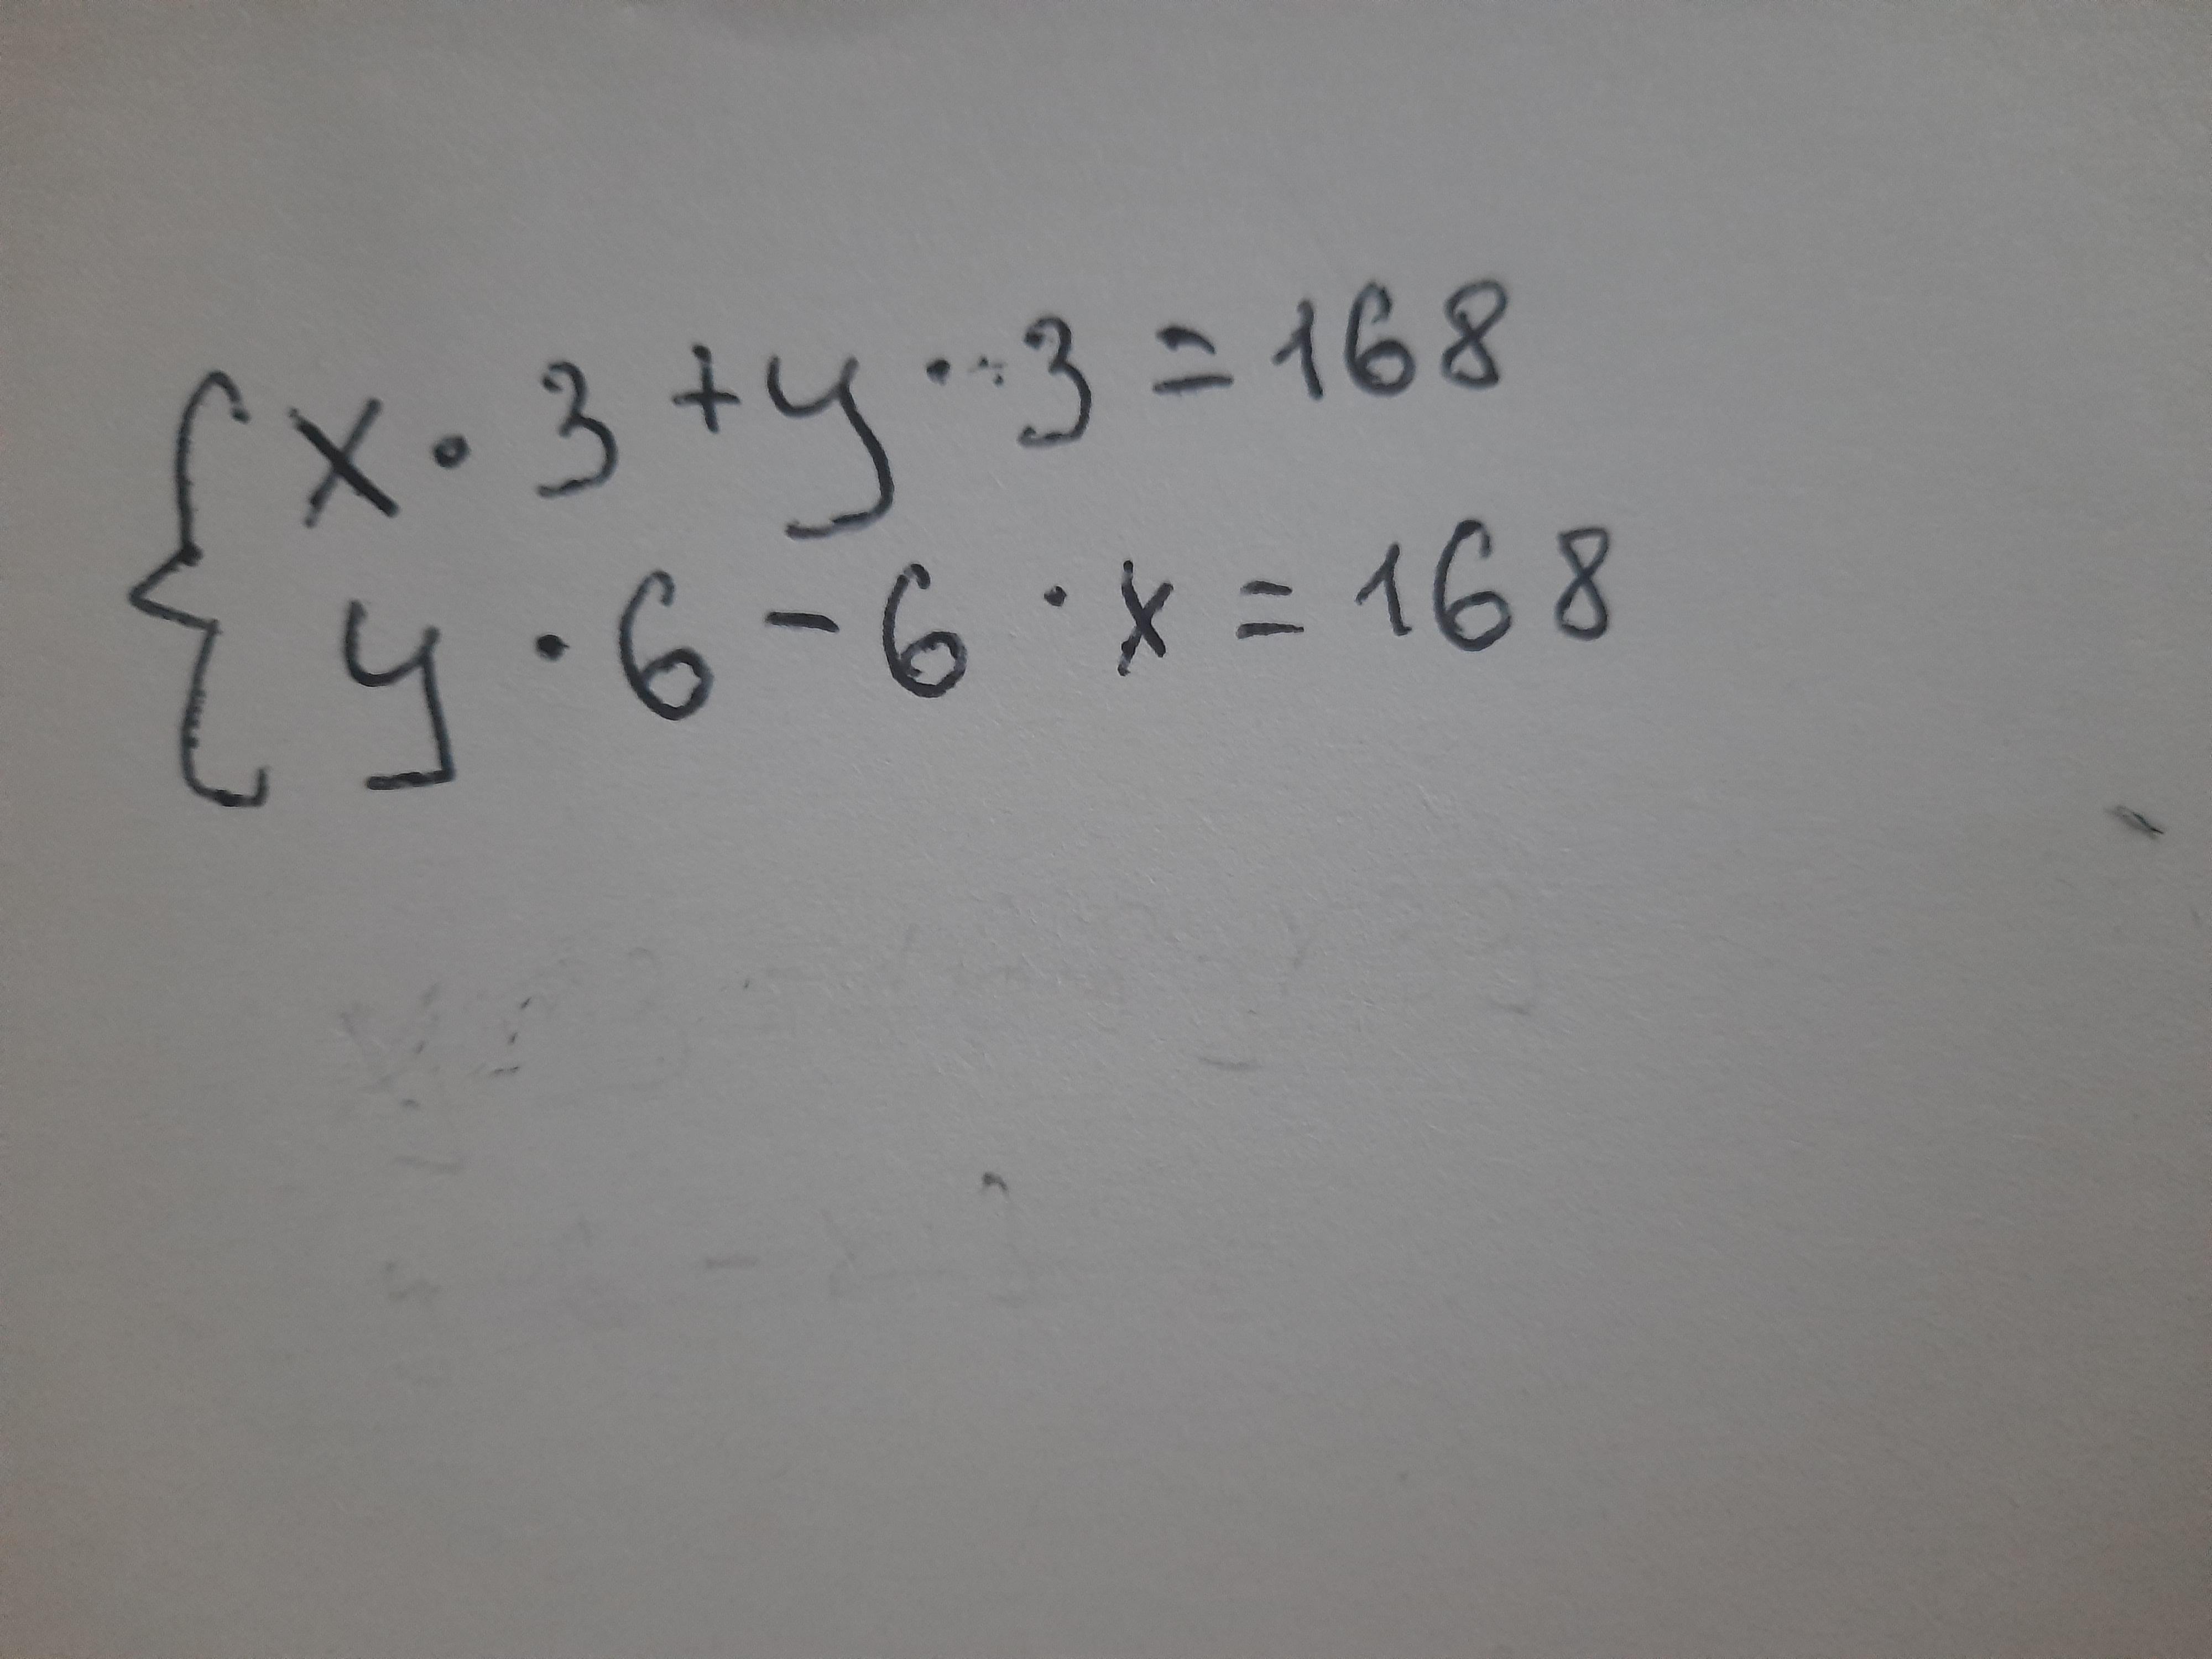 x · 3 + y · 3 = 168
y · 6 - 6 · x = 168